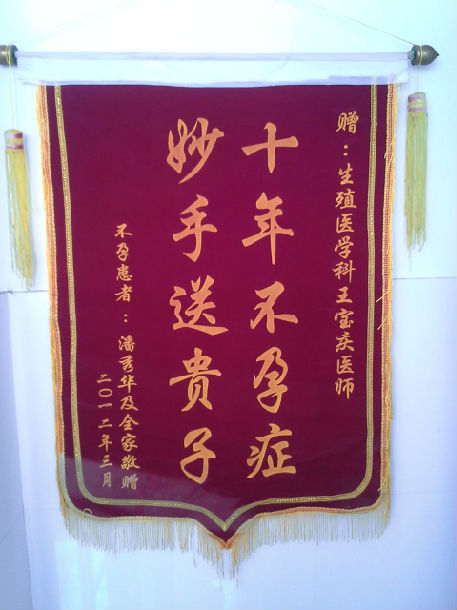 赠：生殖医学科王宝庆医师
十年不孕症
妙手送贵子
不孕患者：潘秀华及全家敬赠
二〇一二年三月